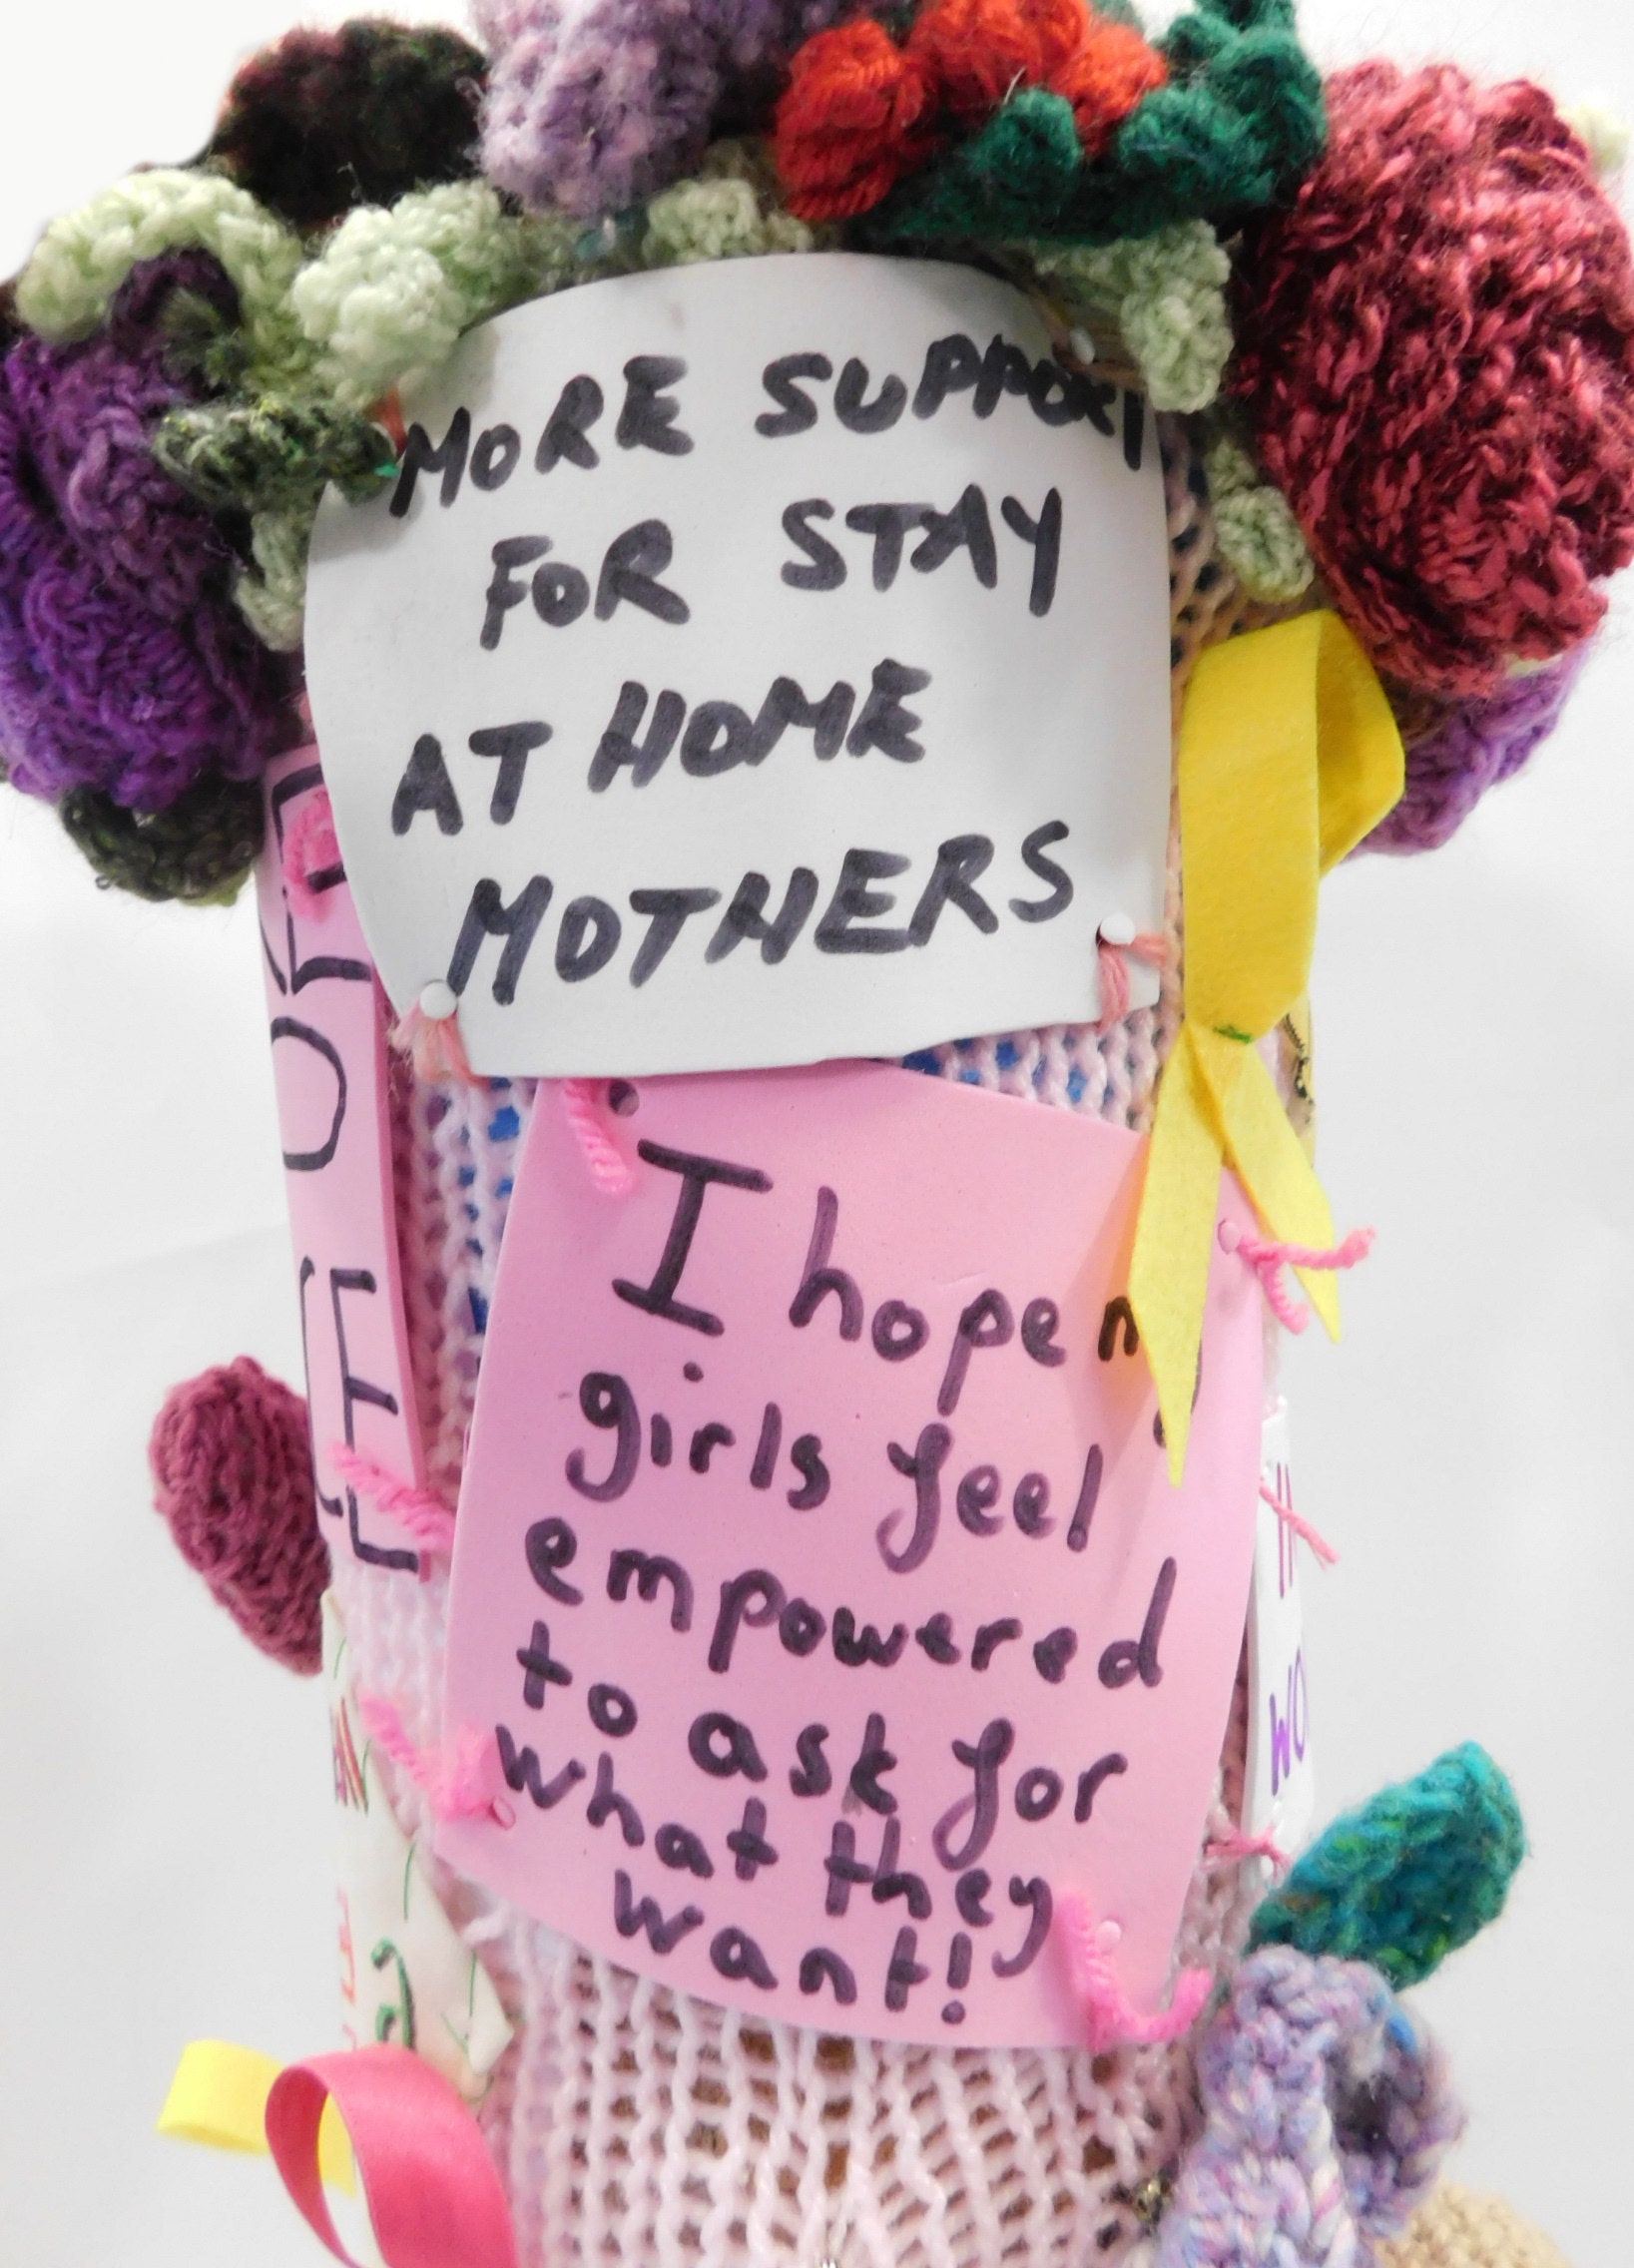 MORE SUPPORT
FOR STAY
AT HOME
MOTHERS
I hope
girls feel
empowered
to ask for
what they
want!